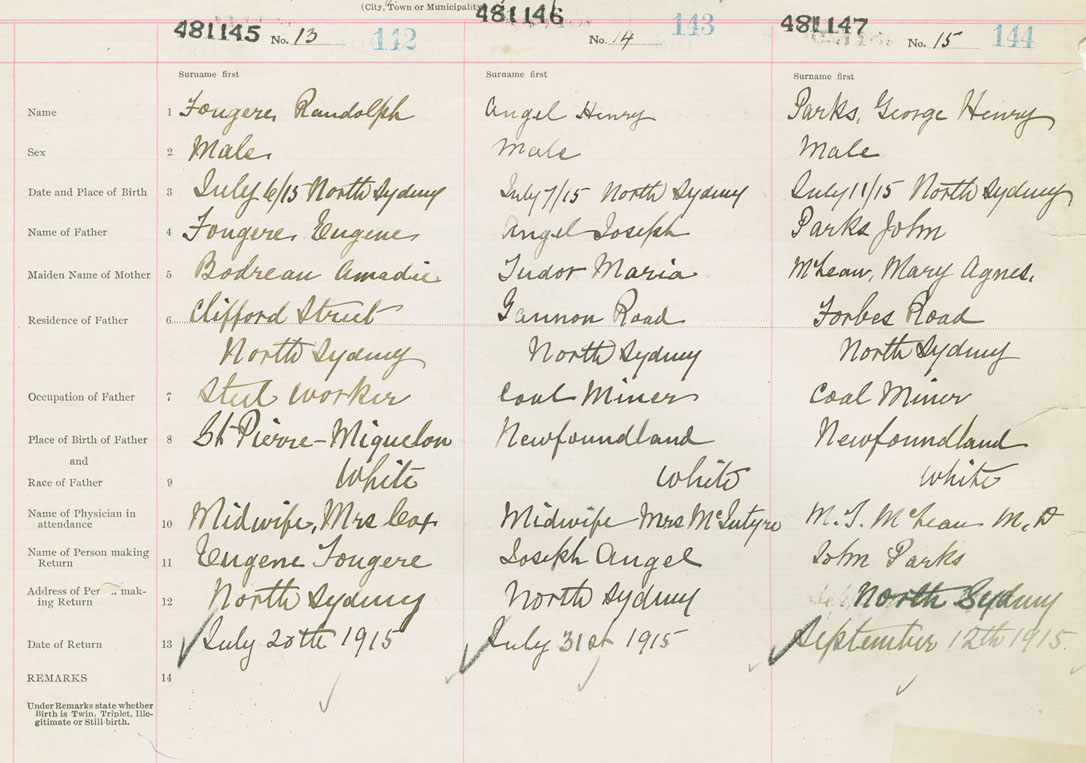 (City, Town or Municipality)
481145 No. 13 142
481146 No. 14 143
481147 No. 15 144
Surname first Surname first Surname first
Name 1 Fougere, Randolph Angel Henry Parks, George Henry
Sex 2 Male. Male Male
Date and Place of Birth 3 July 6/15 North Sydney July 7/15 North Sydney July 11/15 North Sydney
Name of Father 4 Fougere, Eugene Angel Joseph Parks John
Maiden Name of Mother 5 Bodreau Amadie Tudor Maria McLean, Mary Agnes.
Residence of Father 6 Clifford Street Gannon Road Forbes Road
North Sydney North Sydney North Sydney
Occupation of Father 7 Steel Worker Coal Miner Coal Miner
Place of Birth of Father 8 St Pierre-Miquelon Newfoundland Newfoundland
and
Race of Father 9 White White White
Name of Physician in
attendance 10 Midwife, Mrs Cox Midwife Mrs McIntyre M. T. McLean M.D
Name of Person making
Return 11 Eugene Fougere Joseph Angel John Parks
Address of Per mak-
ing Return 12 North Sydney North Sydney North Sydney
Date of Return 13 July 20th 1915 July 31st 1915 September 12th 1915.
REMARKS 14
Under Remarks state whether
Birth is Twin, Triplet, Ille-
gitimate or Still-birth.